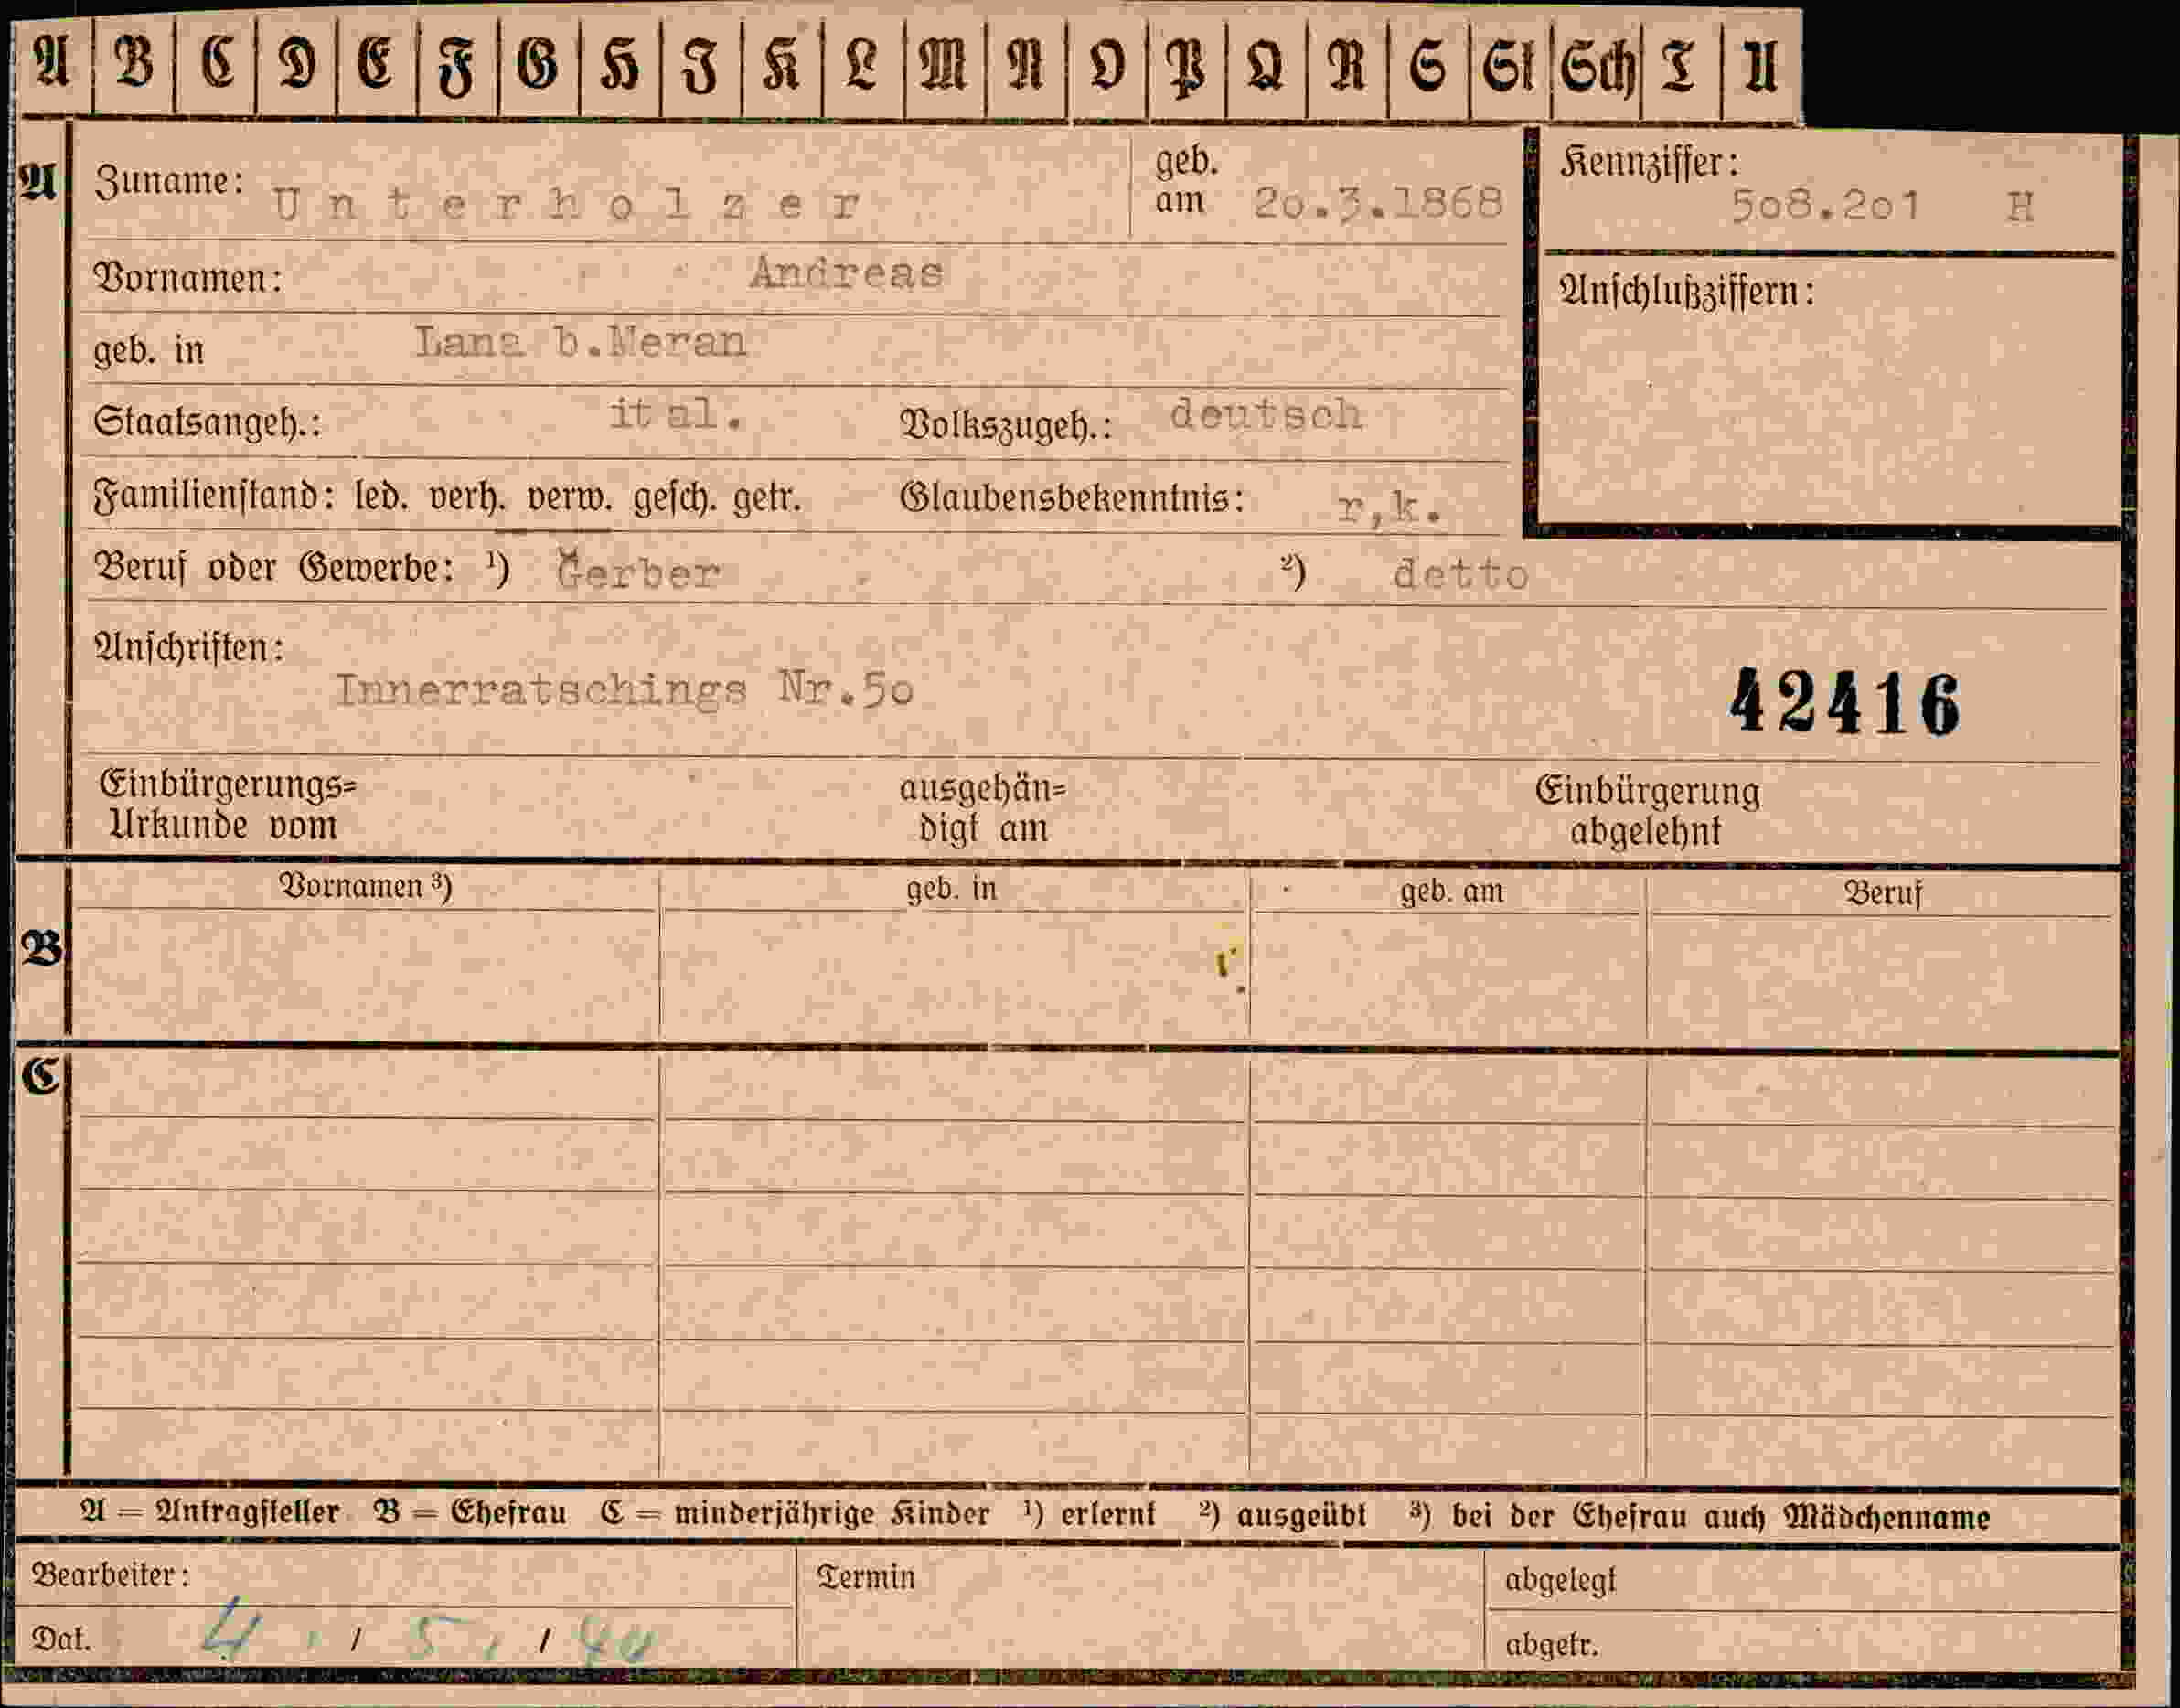 A B C D E F G H I K L M N O P Q R S St Sch T U
A Zuname: Unterholzer geb. am 20.3.1868 Kennziffer: 508.201 H
Vornamen: Andreas Anschlußziffern:
geb. in Lana b.Meran
Staatsangeh.: ital. Volkszugeh.: deutsch
Familienstand: led. verh. verw. gesch. getr. Glaubensbekenntnis: r,k.
Beruf oder Gewerbe: ¹) Gerber ²) detto
Anschriften:
Innerratschings Nr.50 42416
Einbürgerungs= ausgehän= Einbürgerung
Urkunde vom digt am abgelehnt
Vornamen ³) geb. in geb. am Beruf
B
C
A = Antragsteller B = Ehefrau C = minderjährige Kinder ¹) erlernt ²) ausgeübt ³) bei der Ehefrau auch Mädchenname
Bearbeiter: Termin abgelegt
Dat. 4. / 5. / 40 abgetr.